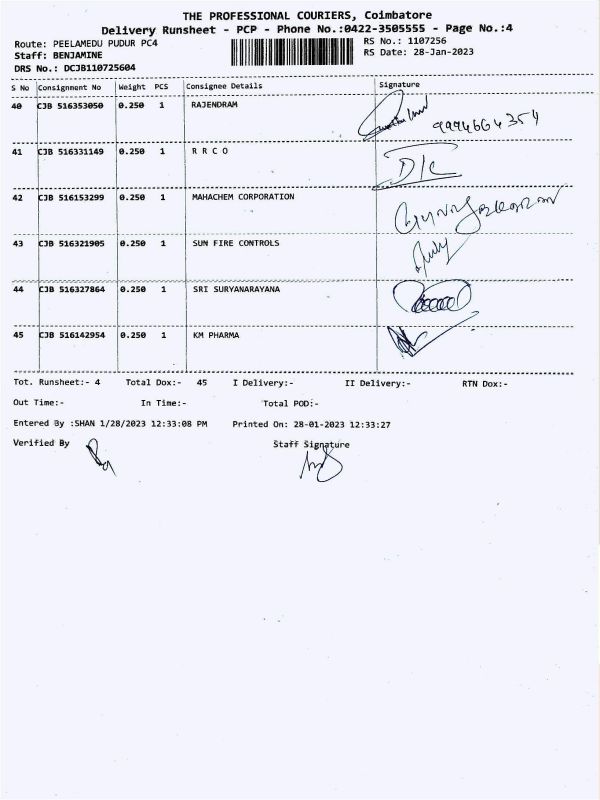 THE PROFESSIONAL COURIERS, Coimbatore
Delivery Runsheet - PCP - Phone No.:0422-3505555 - Page No.:4
Route: PEELAMEDU PUDUR PC4
RS No.: 1107256
Staff: BENJAMINE
RS Date: 28-Jan-2023
DRS No.: DCJB110725604
S No Consignment No Weight PCS Consignee Details Signature
40 CJB 516353050 0.250 1 RAJENDRAM
9994664354
41 CJB 516331149 0.250 1 R R C O
D/C
42 CJB 516153299 0.250 1 MAHACHEM CORPORATION
43 CJB 516321905 0.250 1 SUN FIRE CONTROLS
44 CJB 516327864 0.250 1 SRI SURYANARAYANA
45 CJB 516142954 0.250 1 KM PHARMA
Tot. Runsheet:- 4 Total Dox:- 45 I Delivery:- II Delivery:- RTN Dox:-
Out Time:- In Time:- Total POD:-
Entered By :SHAN 1/28/2023 12:33:08 PM Printed On: 28-01-2023 12:33:27
Verified By Staff Signature